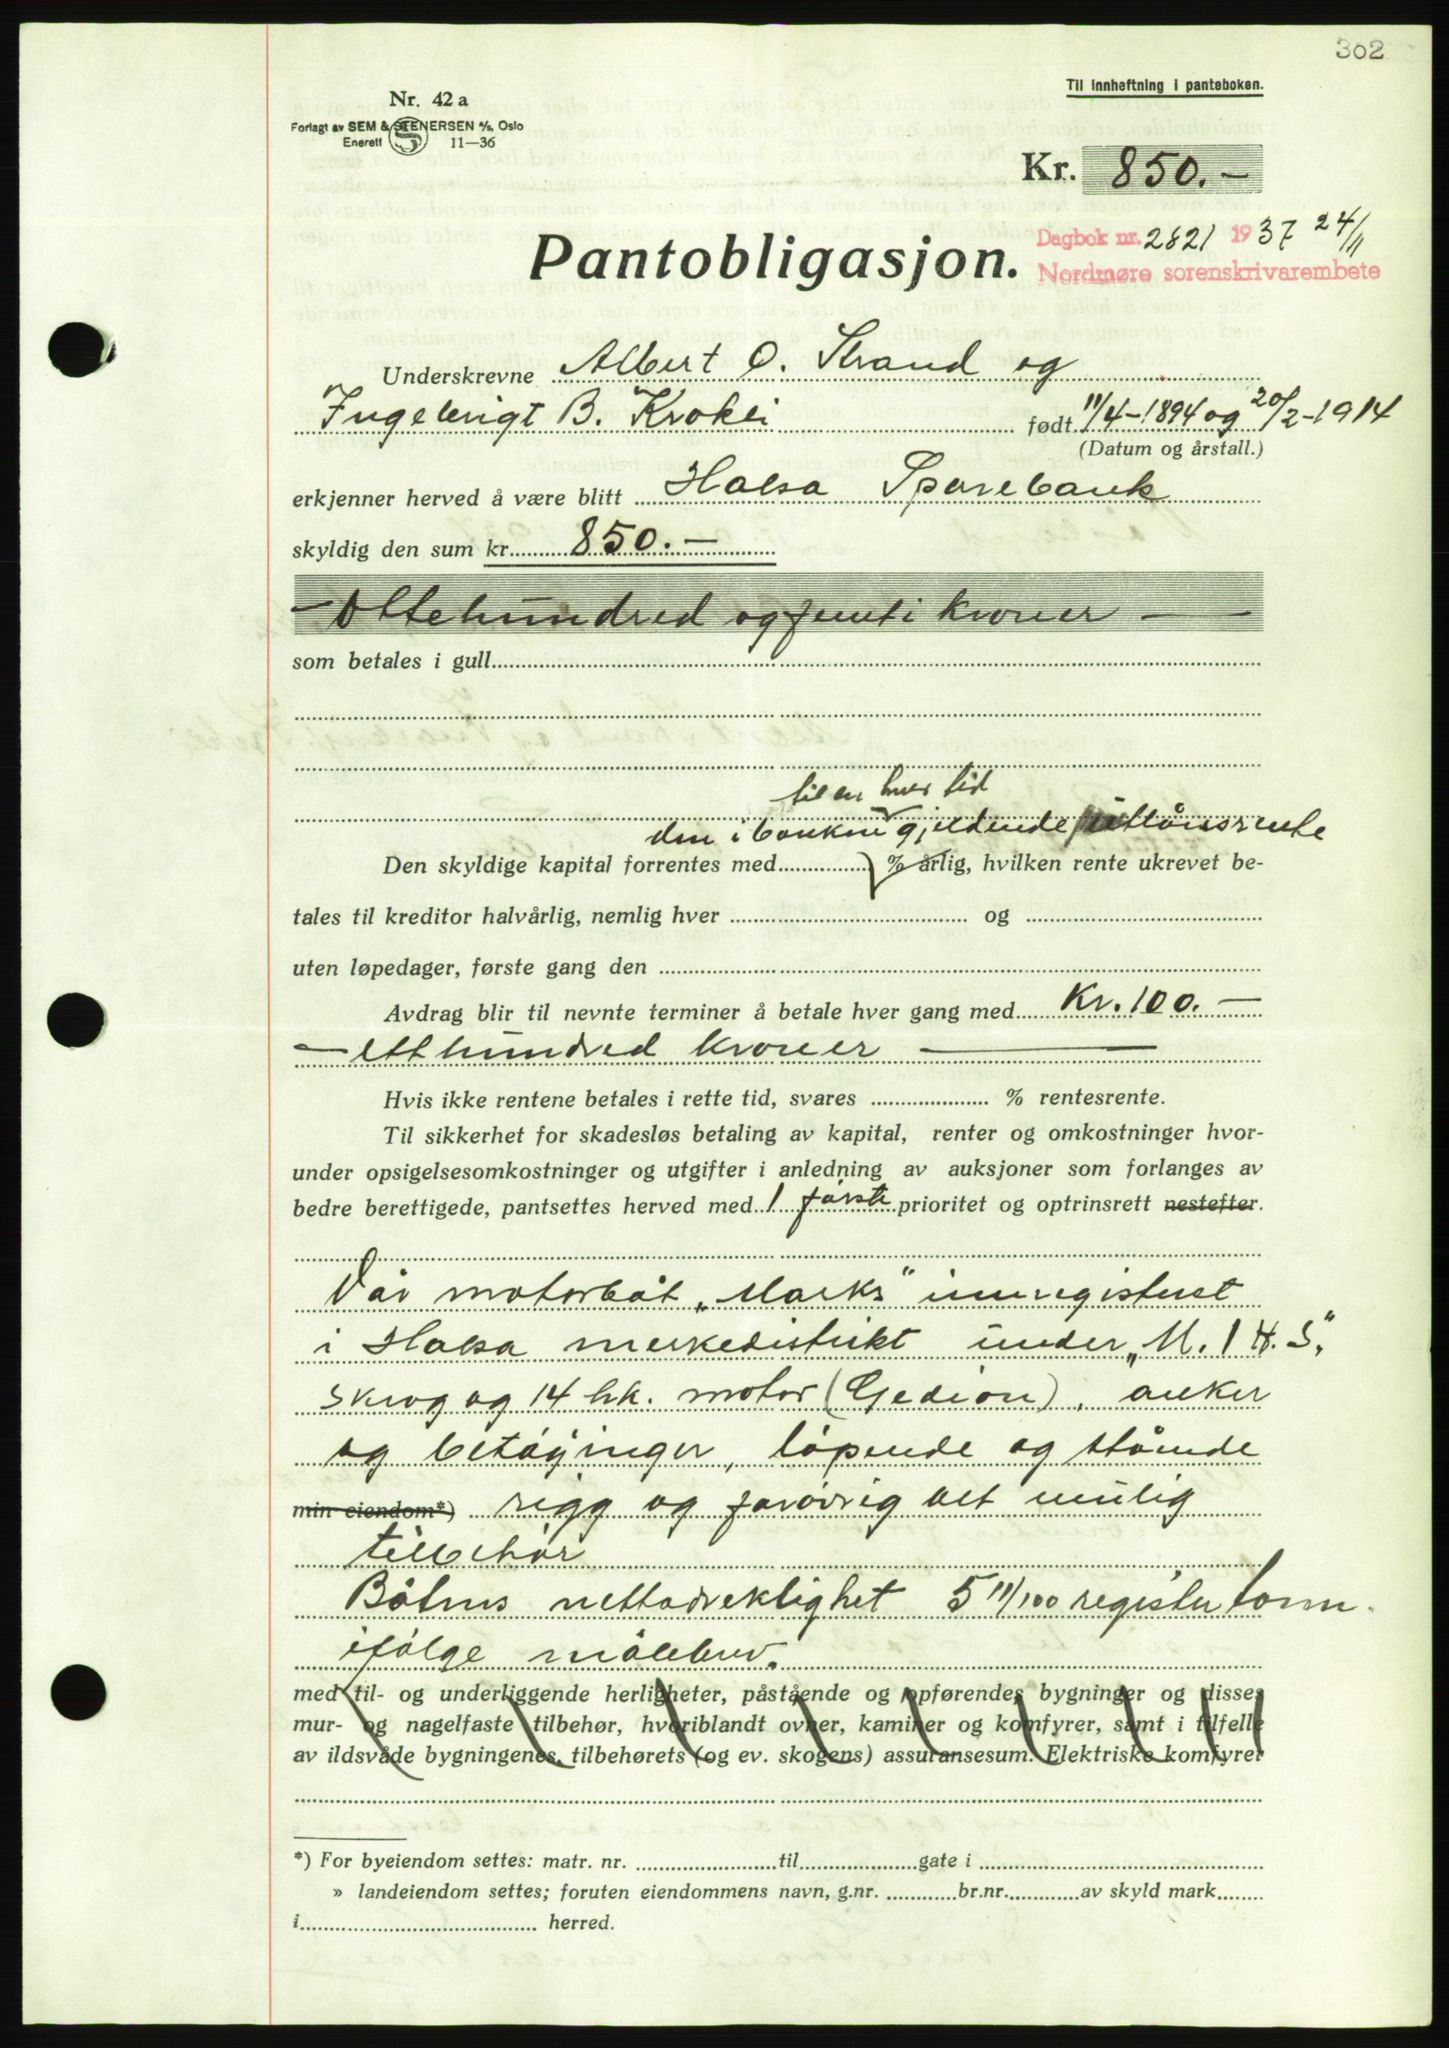 302
Til innheftning i panteboken.
Nr. 42 a
Forlagt av SEM & STENERSEN A/S, Oslo
Enerett 11—36
Kr. 850.—
Dagbok nr. 2821 1937 24/11
Nordmøre sorenskrivarembete
Pantobligasjon.
Underskrevne Albert O. Strand og
Ingebrigt B. Doklei født 11/4-1894 og 20/2-1914
(Datum og årstall.)
erkjenner herved å være blitt Halsa Sparebank
skyldig den sum kr. 850.—
— Ottehundred og femti kroner —
som betales i gull
til en hver tid
den i banken gjeldende utlånsrente
Den skyldige kapital forrentes med % årlig, hvilken rente ukrevet be-
tales til kreditor halvårlig, nemlig hver og
uten løpedager, første gang den
Avdrag blir til nevnte terminer å betale hver gang med Kr. 100.—
— etthundred kroner —
Hvis ikke rentene betales i rette tid, svares % rentesrente.
Til sikkerhet for skadesløs betaling av kapital, renter og omkostninger hvor-
under opsigelsesomkostninger og utgifter i anledning av auksjoner som forlanges av
bedre berettigede, pantsettes herved med 1 første prioritet og optrinsrett nestefter.
Vår motorbåt „Marks" innregistrert
i Halsa merkedistrikt under „M. 1 H. S."
skrog og 14 hk. motor (Gedion), anker
og betøyinger, løpende og stående
min eiendom*) rigg og forøvrig alt mulig
tilbehør
Båtens nettodrektighet 5 11/100 register tonn.
ifølge målebrev.
med til- og underliggende herligheter, påstående og opførendes bygninger og disses
mur- og nagelfaste tilbehør, hvoriblandt ovner, kaminer og komfyrer, samt i tilfelle
av ildsvåde bygningenes, tilbehørets (og ev. skogens) assuransesum. Elektriske komfyrer
*) For byeiendom settes: matr. nr. til gate i
» landeiendom settes; foruten eiendommens navn, g.nr. br.nr. av skyld mark
i herred.